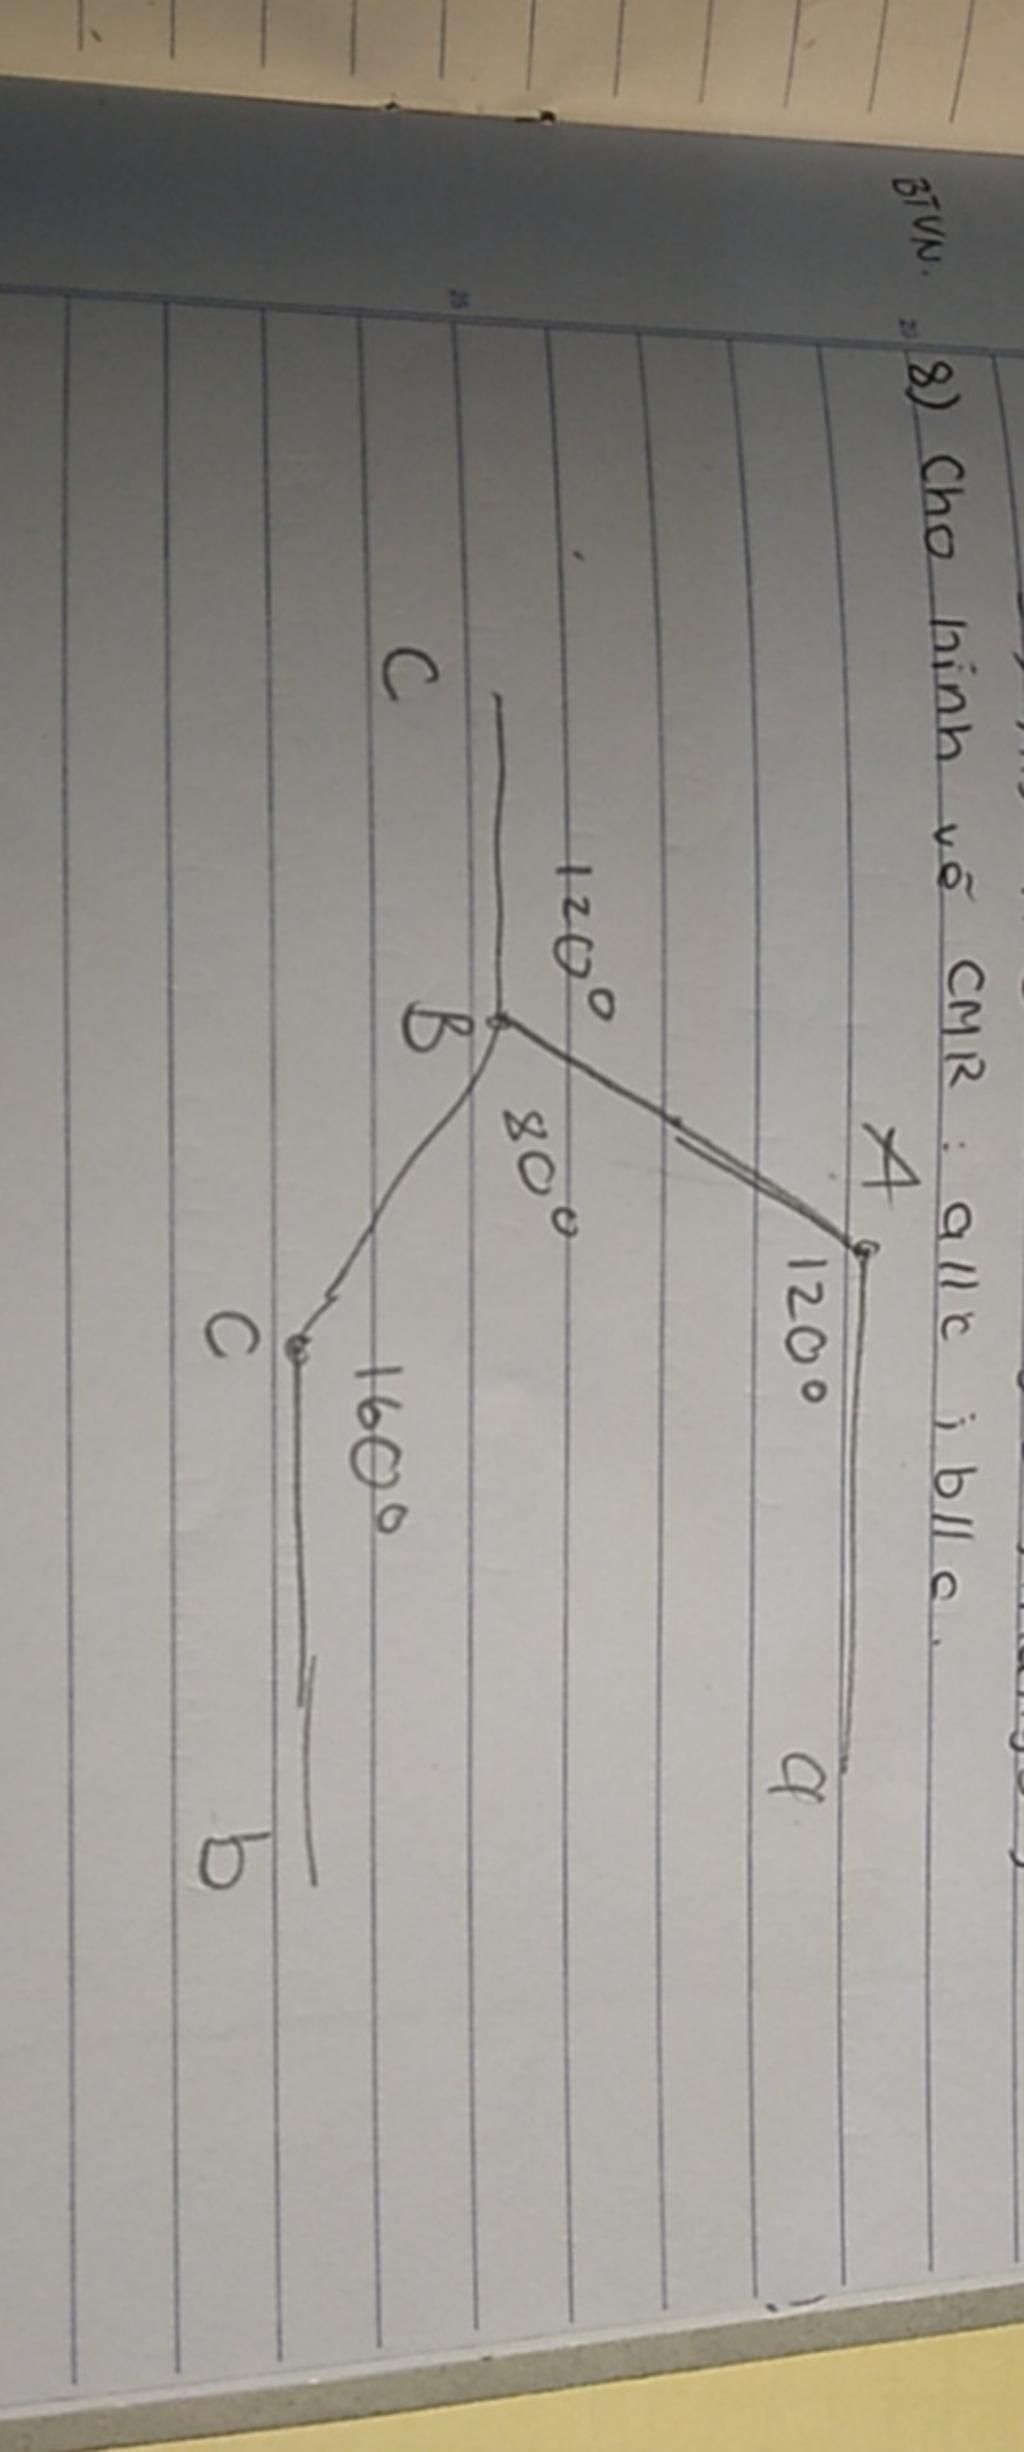 BTVN.
20
8) Cho hình vẽ CMR : a//c ; b//c.
A
120°
a
120°
C
25
B
80°
160°
C
b